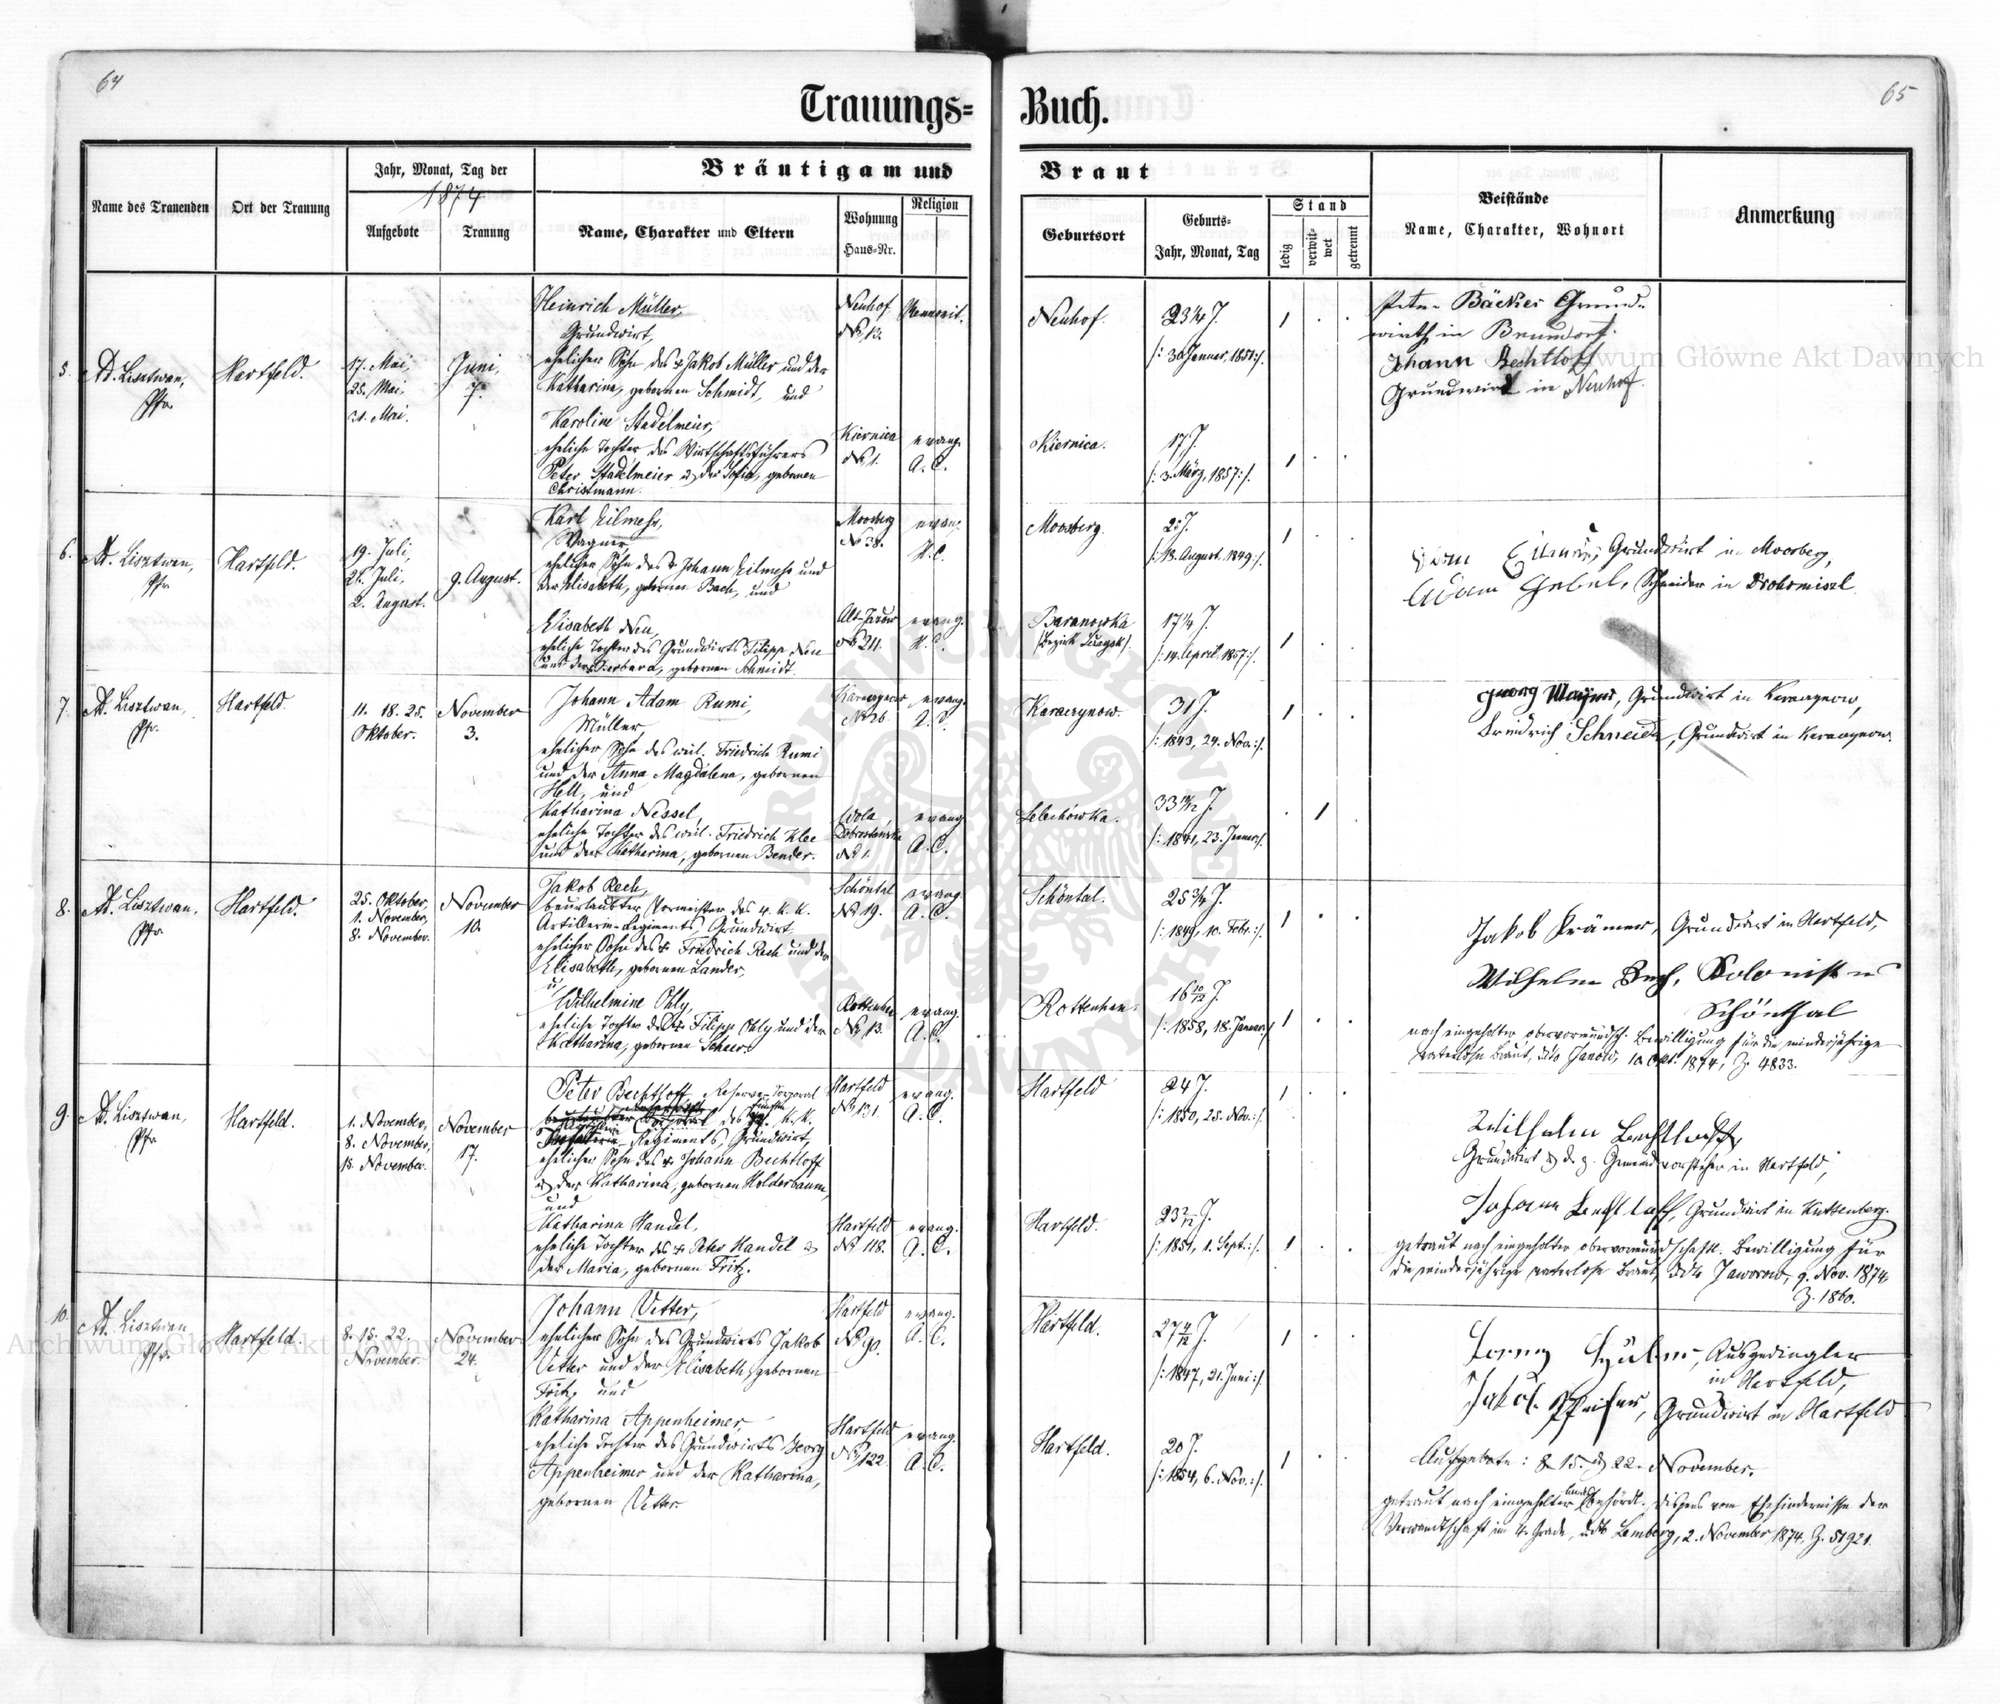 64
65
Trauungs=
Buch.
Name des Trauenden
Ort der Trauung
Jahr, Monat, Tag der
1874
Aufgebote
Trauung
Bräutigam und
Braut
Name, Charakter und Eltern
Wohnung
Haus-Nr.
Religion
Geburtsort
Geburts-
Jahr, Monat, Tag
Stand
ledig
verwit-
wet
getrennt
Beistände
Name, Charakter, Wohnort
Anmerkung
5.
Ad. Lisztwan,
Pfr.
Hartfeld.
17. Mai,
25. Mai,
31. Mai.
Juni,
7.
Heinrich Müller,
Grundwirt,
ehelicher Sohn des † Jakob Müller und der
Katharina, gebornen Schmidt, und
Neuhof
No 13.
Mennonit.
Neuhof.
23 1/4 J.
/: 30. Jenner, 1851 :/.
Karoline Stadelmeier,
eheliche Tochter des Wirtschaftsführers
Peter Stadelmeier u. der Sofia, gebornen
Christmann.
Kiernica
No 1.
evang.
A. C.
Kiernica.
17 J.
/: 3. März, 1857 :/.
Peter Bäcker Grund-
wirth in Brundorf.
Johann Bechtloff
Grundwirt in Neuhof.
6.
Ad. Lisztwan,
Pfr.
Hartfeld.
19. Juli,
26. Juli,
2. August.
9. August.
Karl Eilmess,
Wagner,
ehelicher Sohn des † Johann Eilmess und
der Elisabeth, gebornen Bach, und
Moosberg
No 38.
evang.
H. C.
Moosberg.
25 J.
/: 18. August, 1849 :/.
Elisabeth Neu,
eheliche Tochter des Grundwirts Filipp Neu
und der Barbara, gebornen Schmidt.
Alt-Jazow
No 211.
evang.
H. C.
Baranowka
17 1/4 J.
/: 14. April, 1857 :/.
Grundwirt in Moosberg,
Adam Gebel, Schneider in Drohomisel
7.
Ad. Lisztwan,
Pfr.
Hartfeld.
11. 18. 25.
Oktober.
November
3.
Johann Adam Rumi,
Müller,
ehelicher Sohn des weil. Friedrich Rumi
und der Anna Magdalena, gebornen
Hell, und
No 26.
evang.
A. C.
Karaczynow.
31 J.
/: 1843, 24. Nov. :/.
Katharina Nessel,
eheliche Tochter des weil. Friedrich Klee
und der Katharina, gebornen Bender.
Wola
Dobrostanska
No 1.
evang.
A. C.
Lelechówka.
33 10/12 J.
/: 1841, 23. Jenner :/.
Georg Mayer, Grundwirt in Karaczynow,
Friedrich Schneider, Grundwirt in Karaczynow.
8.
Ad. Lisztwan,
Pfr.
Hartfeld.
25. Oktober,
1. November,
8. November.
November
10.
Jakob Rech,
beurlaubter Vormeister des 4. K. K.
Artillerie-Regiments, Grundwirt,
ehelicher Sohn des † Friedrich Rech und der
Elisabeth, gebornen Lander,
u.
Schöntal
No 19.
evang.
A. C.
Schöntal.
25 3/4 J.
/: 1849, 10. Febr. :/.
Wilhelmine Ohly,
eheliche Tochter des † Filipp Ohly und der
Katharina, gebornen Scheer.
Rottenhan
No 13.
evang.
A. C.
Rottenhan.
16 10/12 J.
/: 1858, 18. Jenner :/.
Jakob Krämer, Grundwirt in Hartfeld,
Wilhelm Rech, Kolonist in
Schönthal
nach eingeholter obervormundsch. Bewilligung für die minderjährige
vaterlose Braut, ddto Janow, 10. Okt. 1874, Z. 4833.
9.
Ad. Lisztwan,
Pfr.
Hartfeld.
1. November,
8. November,
15. November.
November
17.
Peter Bechtloff, Reserve-Corporal
des K. K.
Regiments, Grundwirt,
ehelicher Sohn des † Johann Bechtloff
u. der Katharina, gebornen Holderbaum,
und
Hartfeld
No 131.
evang.
A. C.
Hartfeld
24 J.
/: 1850, 25. Nov. :/.
Katharina Handel,
eheliche Tochter des † Peter Handel u.
der Maria, gebornen Fritz.
Hartfeld
No 118.
evang.
A. C.
Hartfeld.
23 2/12 J.
/: 1851, 1. Sept. :/.
Wilhelm Bechtloff,
Grundwirt u. d. z. Gemeindevorsteher in Hartfeld,
Johann Bechtloff, Grundwirt in Kuttenberg.
getraut nach eingeholter obervormundschaftl. Bewilligung für
die minderjährige vaterlose Braut, ddto Jaworow, 9. Nov. 1874,
Z. 1860.
10.
Ad. Lisztwan
Pfr.
Hartfeld.
8. 15. 22.
November.
November
24.
Johann Vetter,
ehelicher Sohn des Grundwirts Jakob
Vetter und der Elisabeth, gebornen
Fritz, und
Hartfeld
No 90.
evang.
A. C.
Hartfeld.
27 4/12 J.
/: 1847, 21. Juni :/.
Katharina Appenheimer,
eheliche Tochter des Grundwirts Georg
Appenheimer und der Katharina,
gebornen Vetter.
Hartfeld
No 122.
evang.
A. C.
Hartfeld.
20 J.
/: 1854, 6. Nov. :/.
Ausgedingler
in Hartfeld,
Jakob Pfeifer, Grundwirt in Hartfeld
Aufgebote: 8. 15. u. 22. November.
getraut nach eingeholter behördl. Dispens vom Ehehindernisse der
Verwandtschaft im 4. Grade, ddto Lemberg, 2. November 1874, Z. 51921.
Archiwum Główne Akt Dawnych
Archiwum Główne Akt Dawnych
ARCHIWUM GŁÓWNE AKT DAWNYCH